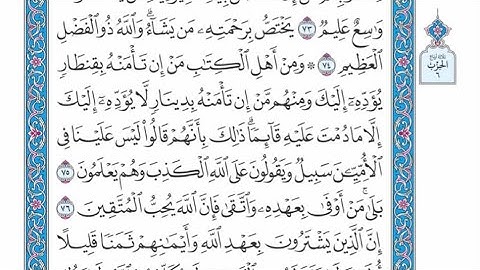 وَٰسِعٌ عَلِيمٌ ٧٣ يَخْتَصُّ بِرَحْمَتِهِۦ مَن يَشَآءُ ۗ وَٱللَّهُ ذُو ٱلْفَضْلِ
ٱلْعَظِيمِ ٧٤ ۞ وَمِنْ أَهْلِ ٱلْكِتَٰبِ مَنْ إِن تَأْمَنْهُ بِقِنطَارٍ
يُؤَدِّهِۦٓ إِلَيْكَ وَمِنْهُم مَّنْ إِن تَأْمَنْهُ بِدِينَارٍ لَّا يُؤَدِّهِۦٓ إِلَيْكَ
إِلَّا مَا دُمْتَ عَلَيْهِ قَآئِمًا ۗ ذَٰلِكَ بِأَنَّهُمْ قَالُوا۟ لَيْسَ عَلَيْنَا فِى
ٱلْأُمِّيِّـۧنَ سَبِيلٌ وَيَقُولُونَ عَلَى ٱللَّهِ ٱلْكَذِبَ وَهُمْ يَعْلَمُونَ ٧٥
بَلَىٰ مَنْ أَوْفَىٰ بِعَهْدِهِۦ وَٱتَّقَىٰ فَإِنَّ ٱللَّهَ يُحِبُّ ٱلْمُتَّقِينَ ٧٦
إِنَّ ٱلَّذِينَ يَشْتَرُونَ بِعَهْدِ ٱللَّهِ وَأَيْمَٰنِهِمْ ثَمَنًا قَلِيلًا
الحزب
٦